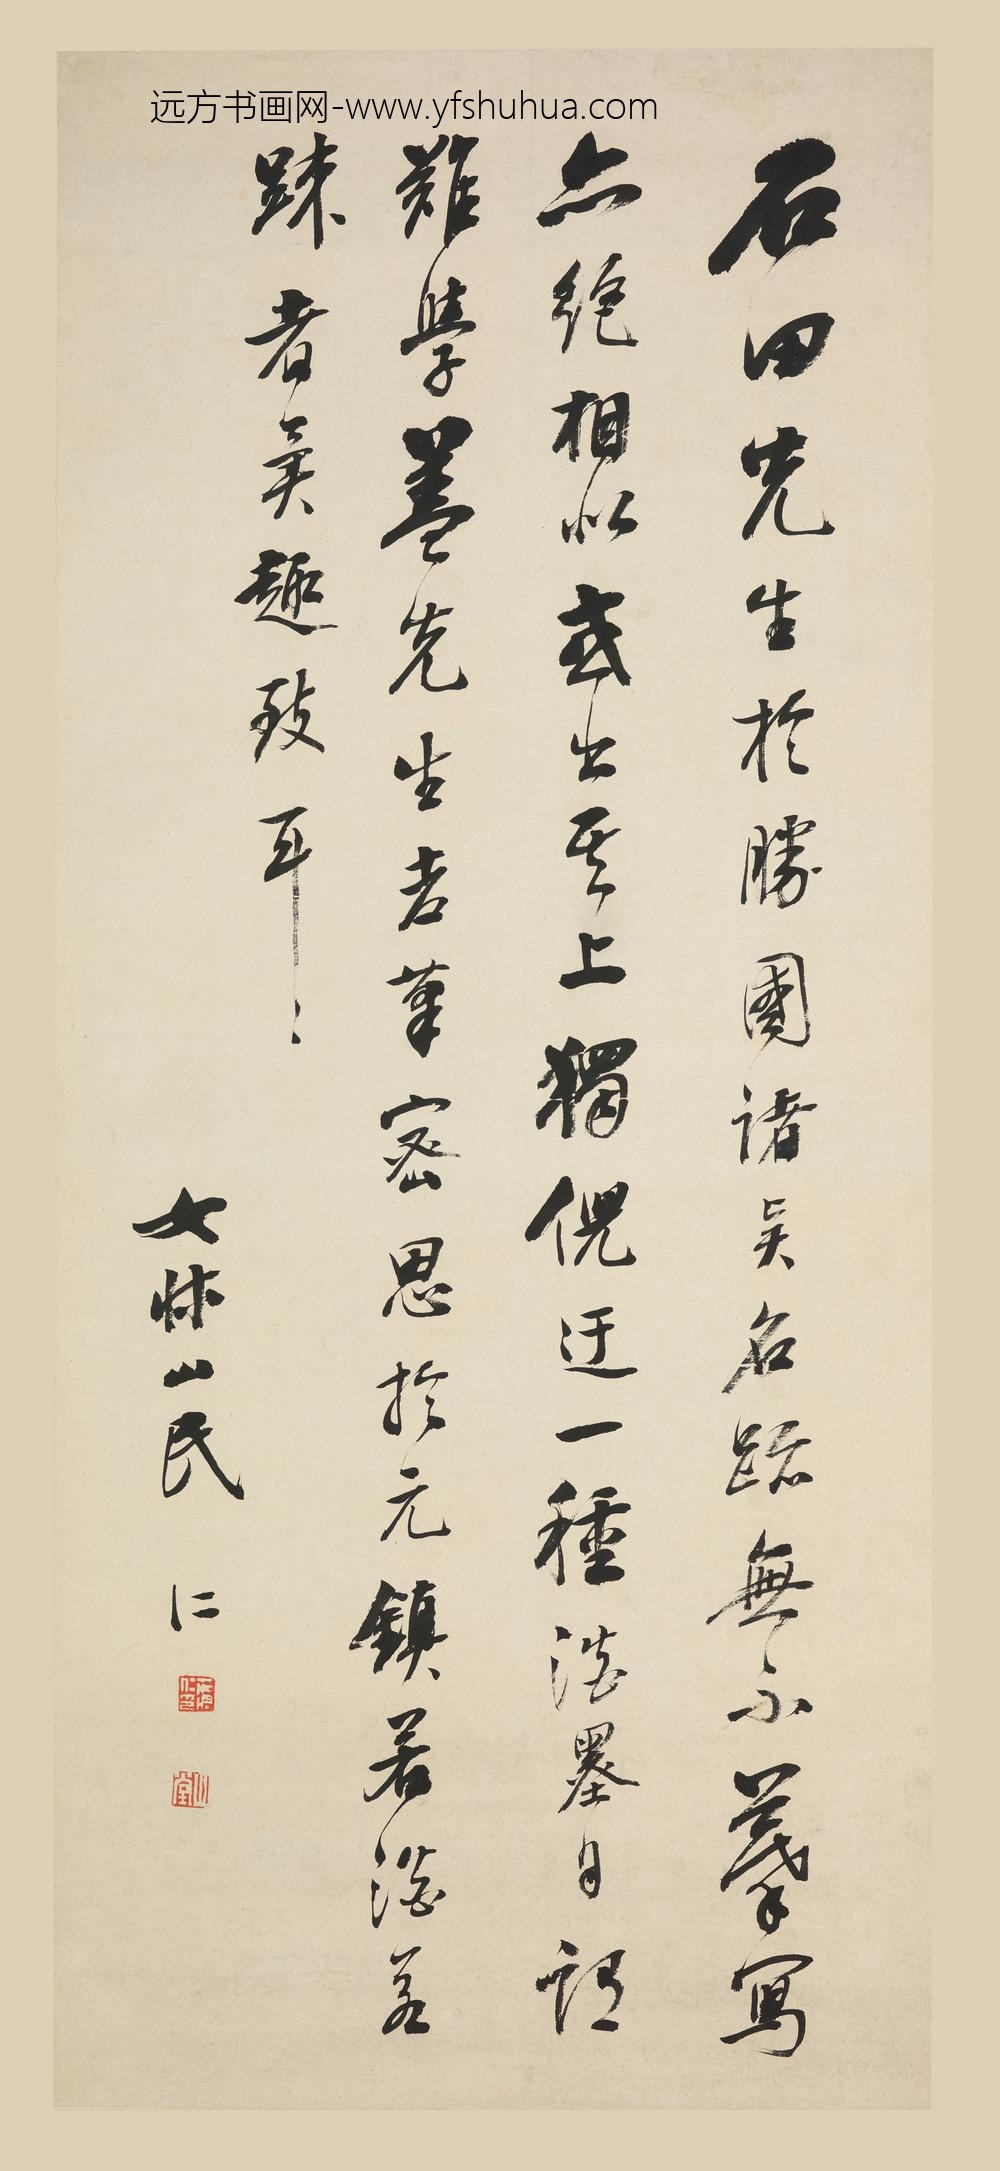 远方书画网-www.yfshuhua.com
石田先生於勝國諸吴名跡無不摹寫
亦絶相似或出其上獨倪迂一種淡墨自謂
難學蓋先生老筆密思於元鎮若淡若
踈者異趣致耳
山民 仁